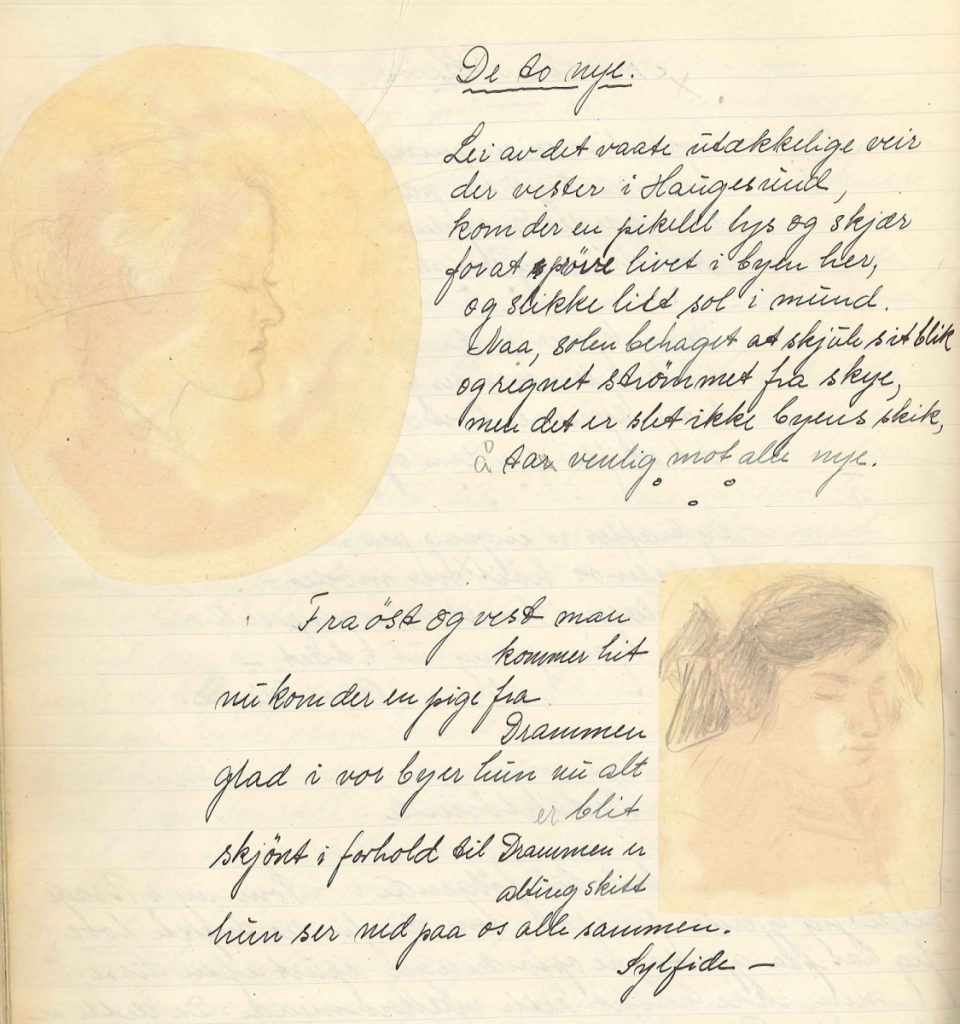 De to nye.
Lei av det vaate utækkelige veir
der vester i Haugesund,
kom der en pikelil lys og skjær
for at pröve livet i byen her,
og slikke litt sol i mund.
Naa, solen behaget at skjule sit blik
og regnet strømmet fra skye,
men det er slet ikke byens skik,
å ta venlig mot alle nye.
Fra öst og vest man
kommer hit
nu kom der en pige fra
Drammen
glad i vor by er hun nu alt
er blit
skjönt i forhold til Drammen er
alting skitt
hun ser ned paa os alle sammen.
Sylfide —